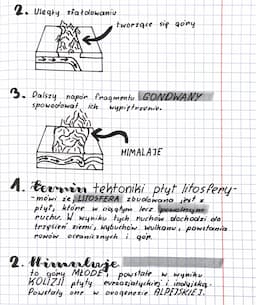 2. Uległy sfałdowaniu
tworzące się góry
3. Dalszy napór fragmentu GONDWANY
spowodował ich wypiętrzenie.
HIMALAJE
1. Termin tektoniki płyt litosfery-
-mówi że LITOSFERA zbudowana jest z
płyt, które w ciągłym lecz powolnym
ruchu. W wyniku tych ruchów dochodzi do
trzęsień ziemi, wybuchów wulkanu, powstania
rowów oceanicznych i gór.
2. Himalaje
to góry MŁODE, powstałe w wyniku
KOLIZJI płyty euroazjatyckiej i indyjską.
Powstały one w orogenezie ALPEJSKIEJ.